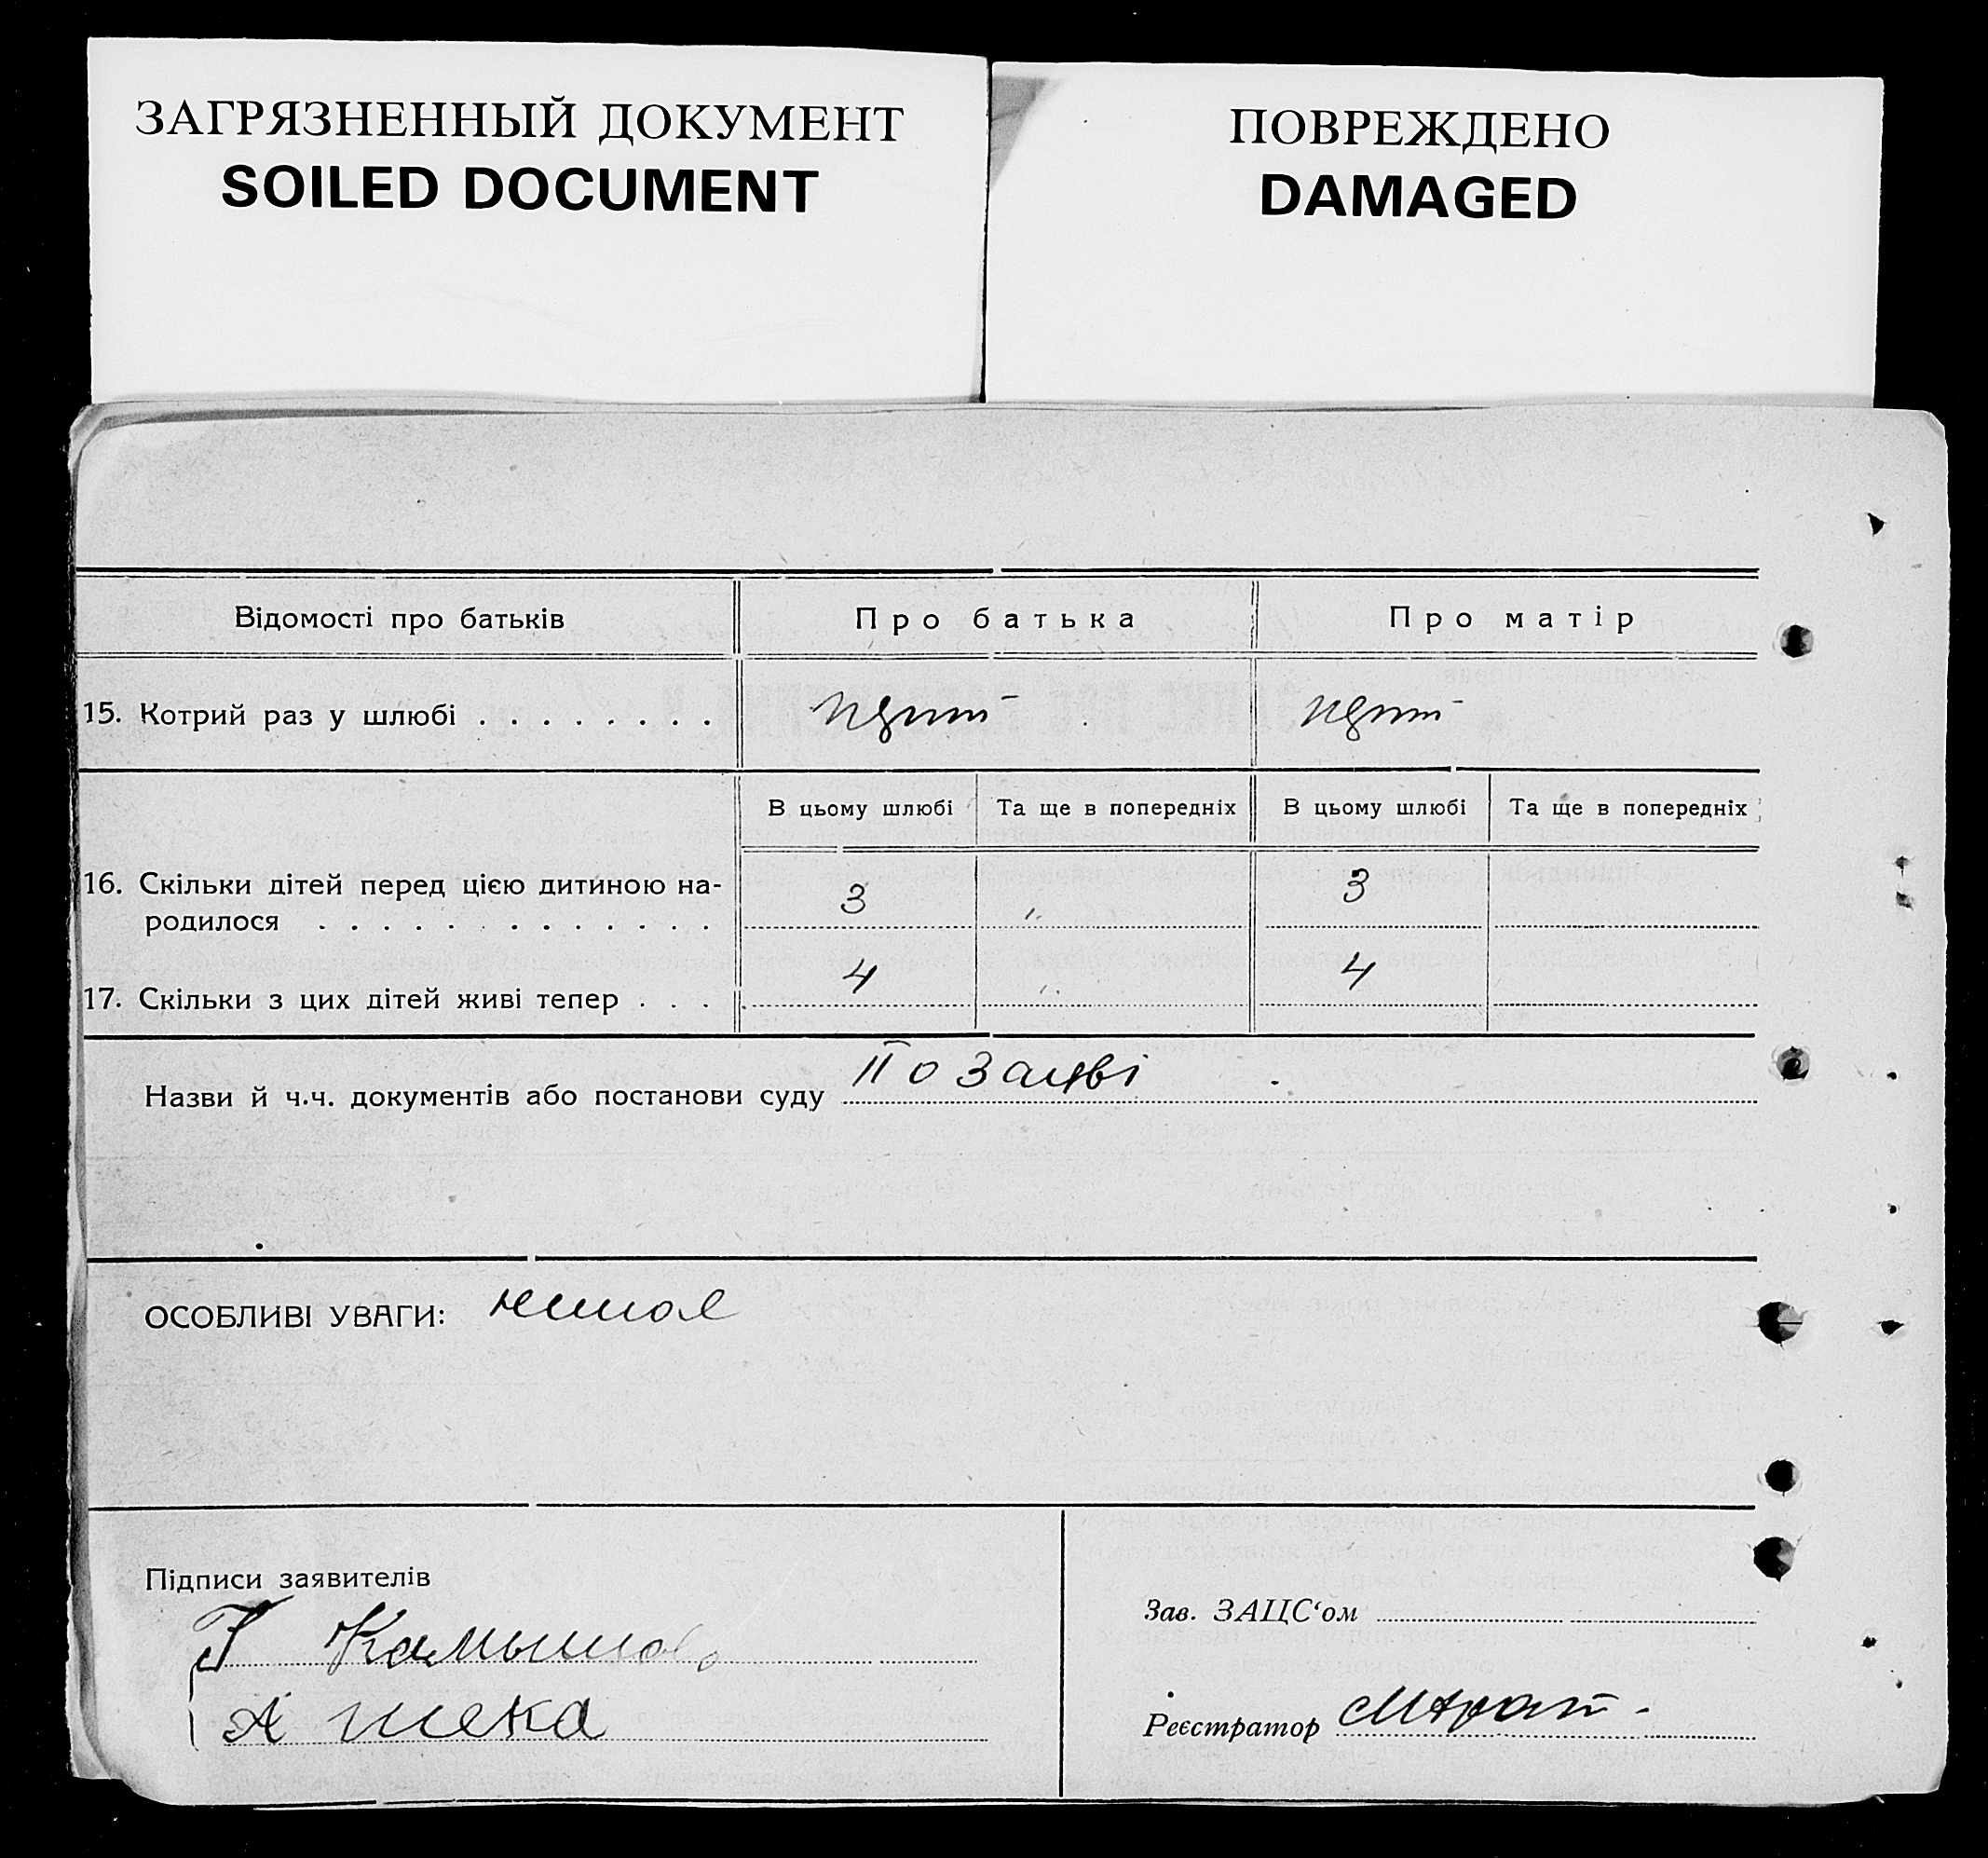 ЗАГРЯЗНЕННЫЙ ДОКУМЕНТ
SOILED DOCUMENT
ПОВРЕЖДЕНО
DAMAGED
Відомості про батьків Про батька Про матір
15. Котрий раз у шлюбі . . . . . . . .
В цьому шлюбі Та ще в попередніх В цьому шлюбі Та ще в попередніх
16. Скільки дітей перед цією дитиною на- 3 3
родилося . . . . . . . . . . . . .
17. Скільки з цих дітей живі тепер . . . 4 4
Назви й ч.ч. документів або постанови суду По заяві
ОСОБЛИВІ УВАГИ:
Підписи заявителів
Зав. ЗАЦС‘ом
Реєстратор